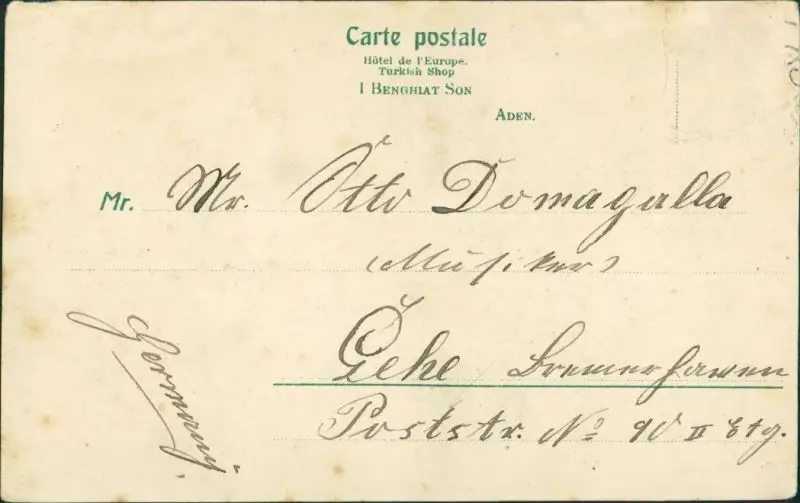 Carte postale
Hôtel de l'Europe.
Turkish Shop
I BENGHIAT SON
ADEN.
Mr. Mr. Otto Domagalla
(Musiker)
Gehe Bremerhaven
Poststr. No 90 II Etg.
Germany.